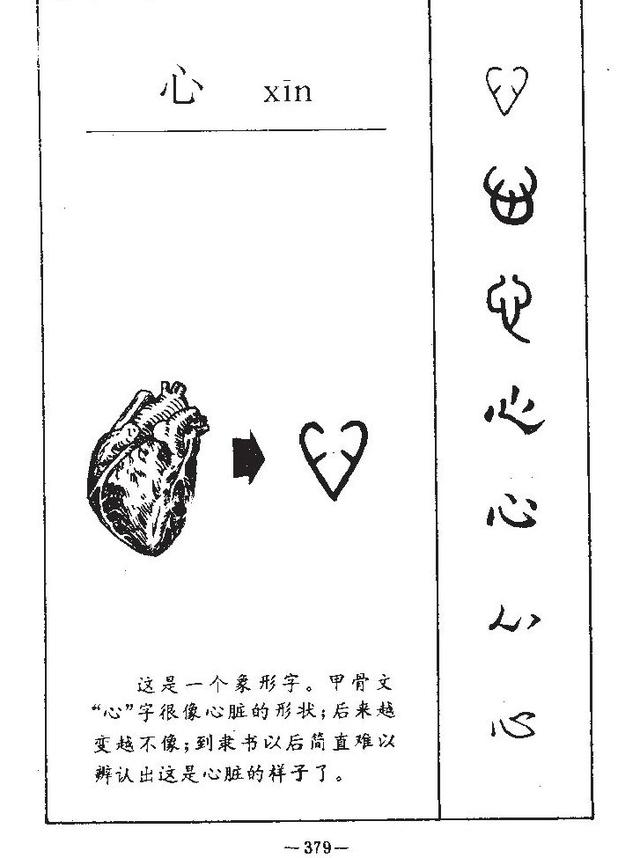 心 xīn
这是一个象形字。甲骨文
“心”字很像心脏的形状;后来越
变越不像;到隶书以后简直难以
辨认出这是心脏的样子了。
心
心
心
心
心
心
心
—379—